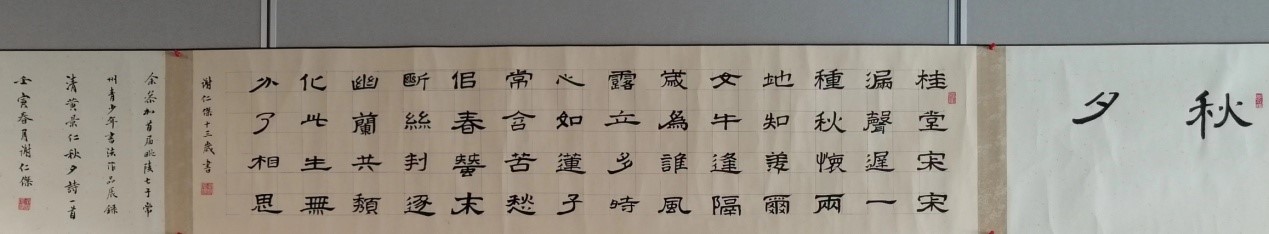 秋夕
桂堂宋宋
漏聲遲一
種秋懷兩
地知羨爾
女牛逢隔
歲為誰風
露立多時
心如蓮子
常含苦愁
佀春蠶未
斷絲判逐
幽蘭共頹
化此生無
分了相思
謝仁傑十三歲書
余參加首屆毗陵七子常
州青少年書法作品展錄
清黃景仁秋夕詩一首
壬寅春月謝仁傑